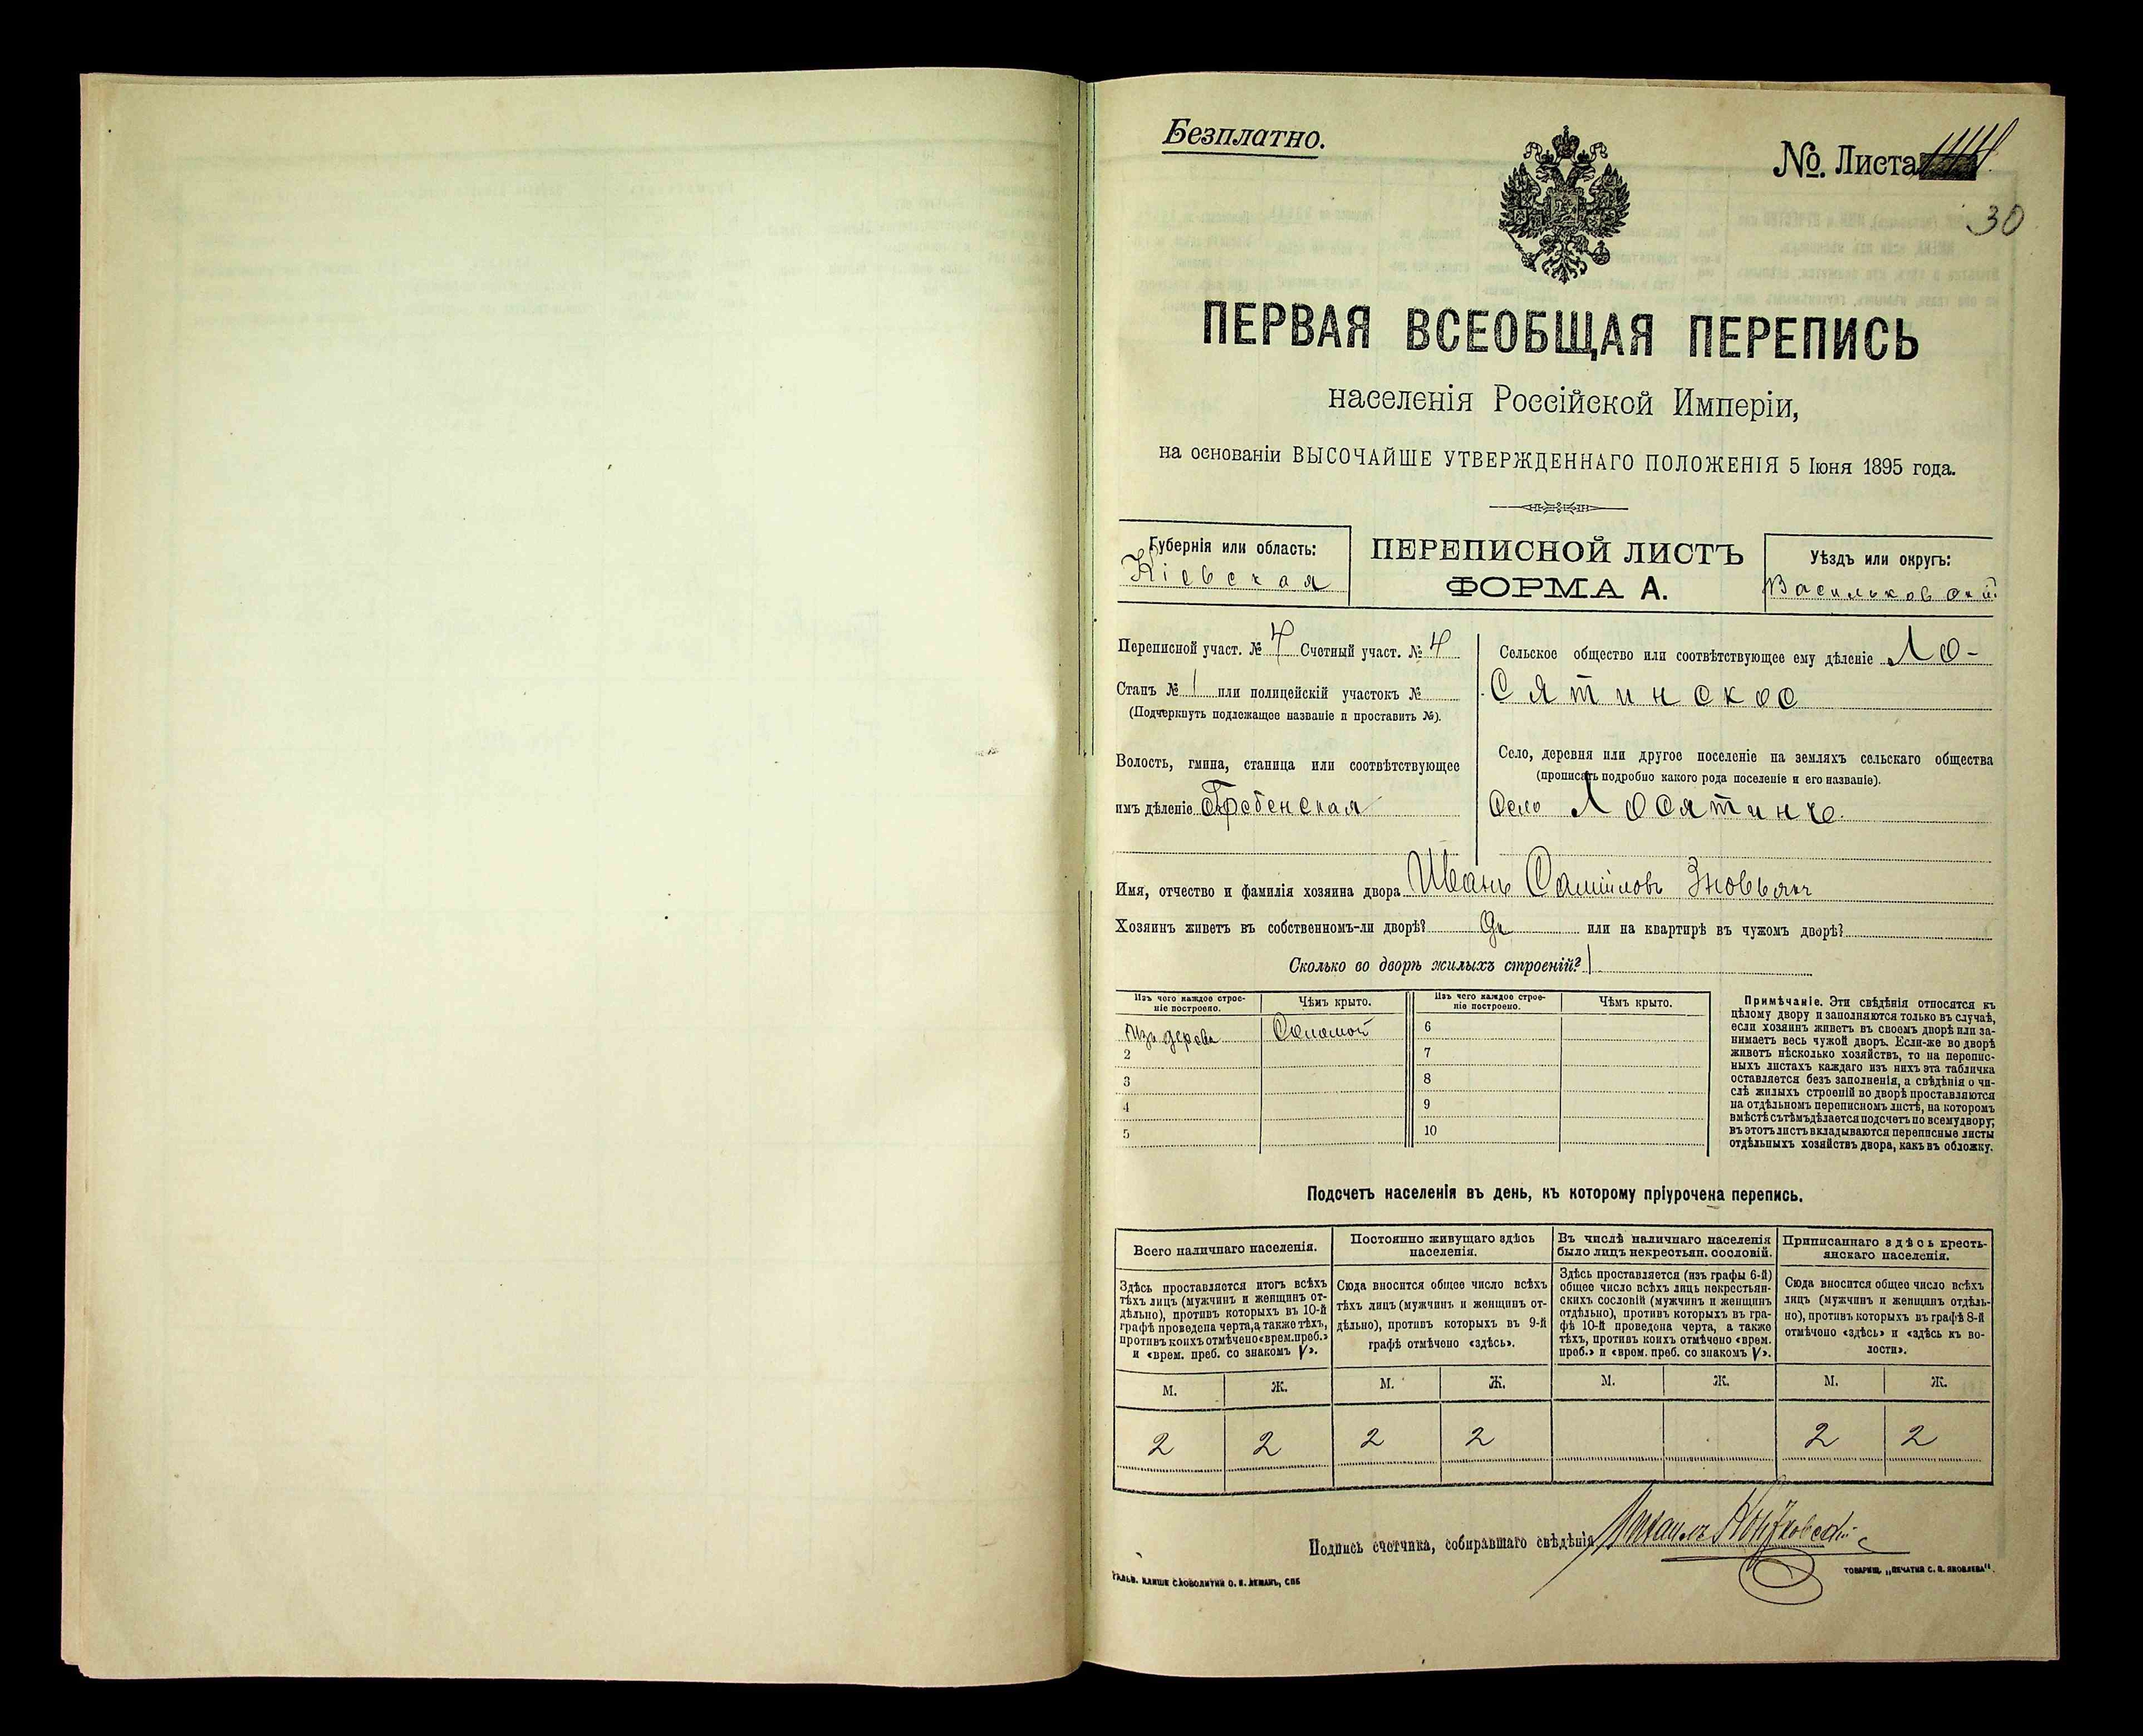 Безплатно.
№. Листа
30
ПЕРВАЯ ВСЕОБЩАЯ ПЕРЕПИСЬ
населенія Россійской Имперіи,
на основаніи ВЫСОЧАЙШЕ УТВЕРЖДЕННАГО ПОЛОЖЕНІЯ 5 Іюня 1895 года.
Губернія или область:
Кіевская
ПЕРЕПИСНОЙ ЛИСТЪ
ФОРМА А.
Уѣздъ или округъ:
Васильковскій
Переписной участ. № 4 Счетный участ. № 4
Станъ № 1 или полицейскій участокъ №
(Подчеркнуть подлежащее названіе и проставить №).
Волость, гмина, станица или соотвѣтствующее
имъ дѣленіе Гребенская
Сельское общество или соотвѣтствующее ему дѣленіе Ло-
сятинское
Село, деревня или другое поселеніе на земляхъ сельскаго общества
(прописать подробно какого рода поселеніе и его названіе).
Село Лосятинче
Имя, отчество и фамилія хозяина двора Иванъ Самійловъ
Хозяинъ живетъ въ собственномъ-ли дворѣ? да или на квартирѣ въ чужомъ дворѣ?
Сколько во дворѣ жилыхъ строеній? 1
Изъ чего каждое строе-
ніе построено.
Чѣмъ крыто.
Изъ чего каждое строе-
ніе построено.
Чѣмъ крыто.
Изъ дерева Соломой 6
2 7
3 8
4 9
5 10
Примѣчаніе. Эти свѣдѣнія относятся къ
цѣлому двору и заполняются только въ случаѣ,
если хозяинъ живетъ въ своемъ дворѣ или за-
нимаетъ весь чужой дворъ. Если-же во дворѣ
живетъ нѣсколько хозяйствъ, то на перепис-
ныхъ листахъ каждаго изъ нихъ эта табличка
оставляется безъ заполненія, а свѣдѣнія о чи-
слѣ жилыхъ строеній во дворѣ проставляются
на отдѣльномъ переписномъ листѣ, на которомъ
вмѣстѣ съ тѣмъ дѣлается подсчетъ по всему двору;
въ этотъ листъ вкладываются переписные листы
отдѣльныхъ хозяйствъ двора, какъ въ обложку.
Подсчетъ населенія въ день, къ которому пріурочена перепись.
Всего наличнаго населенія.
Здѣсь проставляется итогъ всѣхъ
тѣхъ лицъ (мужчинъ и женщинъ от-
дѣльно), противъ которыхъ въ 10-й
графѣ проведена черта, а также тѣхъ,
противъ коихъ отмѣчено «врем. преб.»
и «врем. преб. со знакомъ V».
Постоянно живущаго здѣсь
населенія.
Сюда вносится общее число всѣхъ
тѣхъ лицъ (мужчинъ и женщинъ от-
дѣльно), противъ которыхъ въ 9-й
графѣ отмѣчено «здѣсь».
Въ числѣ наличнаго населенія
было лицъ некрестьян. сословій.
Здѣсь проставляется (изъ графы 6-й)
общее число всѣхъ лицъ некрестьян-
скихъ сословій (мужчинъ и женщинъ
отдѣльно), противъ которыхъ въ гра-
фѣ 10-й проведена черта, а также
тѣхъ, противъ коихъ отмѣчено «врем.
преб.» и «врем. преб. со знакомъ V».
Приписаннаго здѣсь кресть-
янскаго населенія.
Сюда вносится общее число всѣхъ
лицъ (мужчинъ и женщинъ отдѣль-
но), противъ которыхъ въ графѣ 8-й
отмѣчено «здѣсь» и «здѣсь къ во-
лости».
М. Ж. М. Ж. М. Ж. М. Ж.
2 2 2 2 2 2
Подпись счетчика, собиравшаго свѣдѣнія Михаилъ
ГАЛЬВ. КЛИШЕ СЛОВОЛИТНИ О. И. ЛЕМАНЪ, СПБ
ТОВАРИЩ. „ПЕЧАТНЯ С. П. ЯКОВЛЕВА".